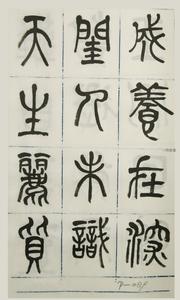 成養在深
閨人未識
天生麗質